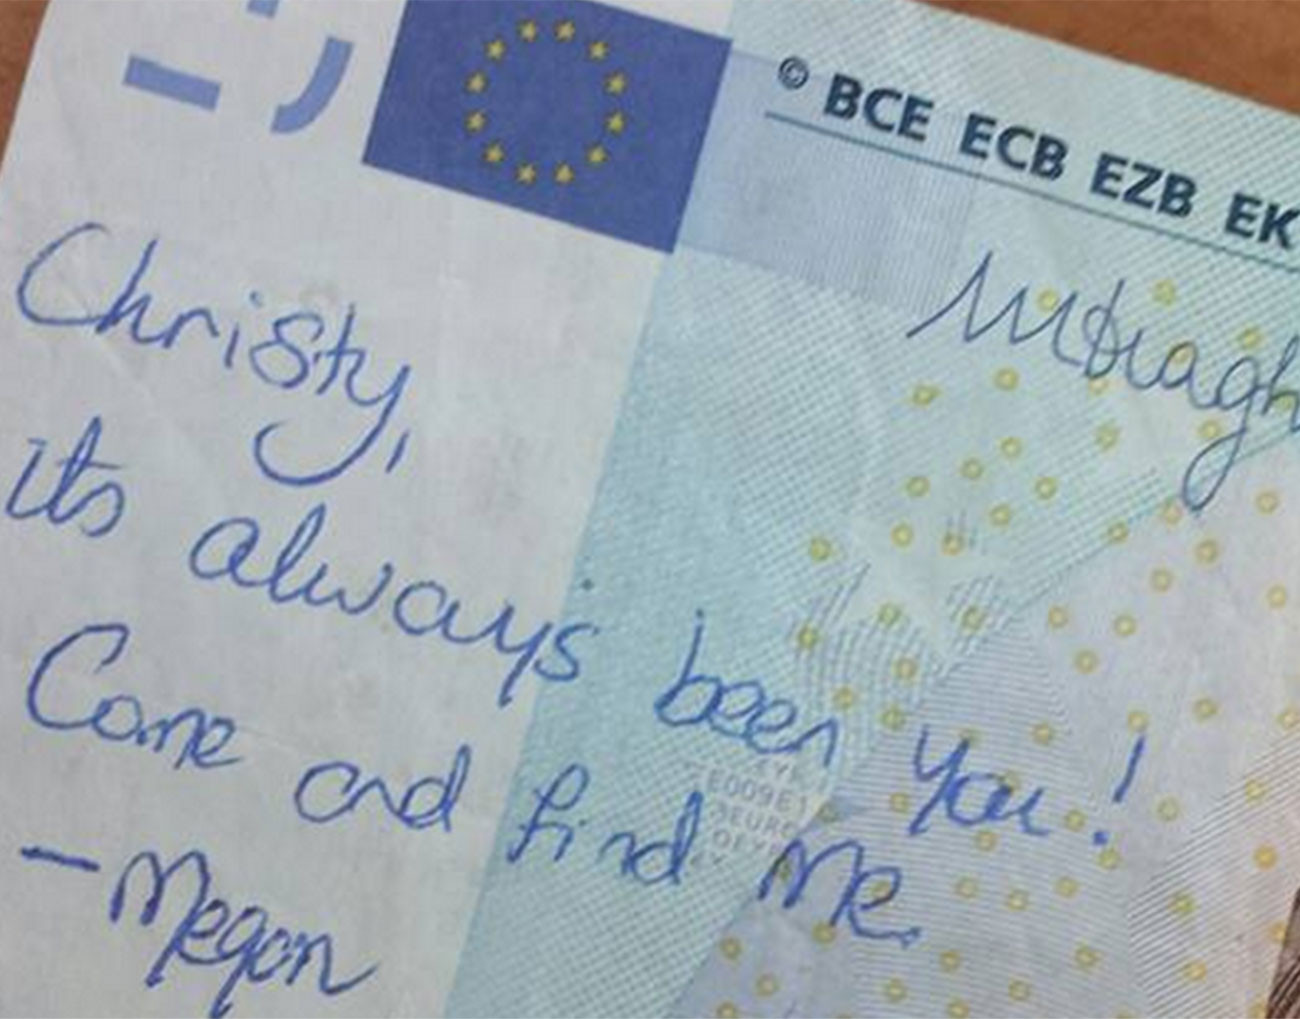 © BCE ECB EZB EK
Christy,
its always been you!
Come and find me.
- Megan